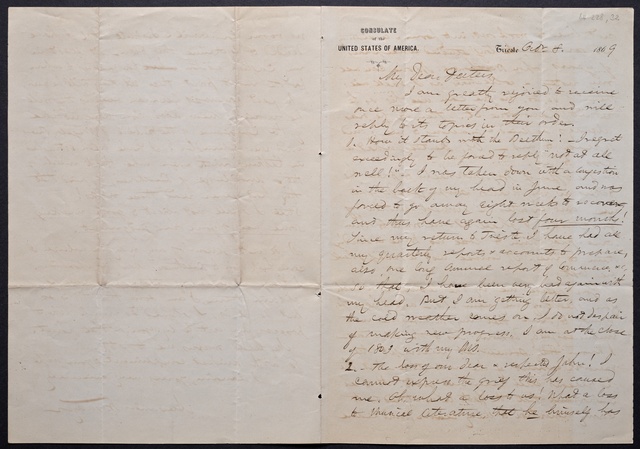 CONSULATE
of the
UNITED STATES OF AMERICA.
Trieste Oct. 8. 1869
My Dear Deiters
I am greatly rejoiced to receive
once more a letter from you and will
reply to its topics in their order.
1. How it stands with the Beethn? I regret
exceedingly to be forced to reply "not at all
well!" I was taken down with a congestion
in the back of my head in June, and was
forced to go away eight weeks to recover,
and thus have again lost four months!
Since my return to Trieste I have had all
my quarterly reports & accounts to prepare,
also, one long Annual report of commerce, &c.
so that I have been very bad again with
my head. But I am getting better, and as
the cold weather comes on, I do not despair
of making new progress. I am at the close
of 1803 with my MS.
2. - The loss of our dear & respected Jahn! I
cannot express the grief this has caused
me. Oh what a loss to us! What a loss
to Musical Literature, that he himself has